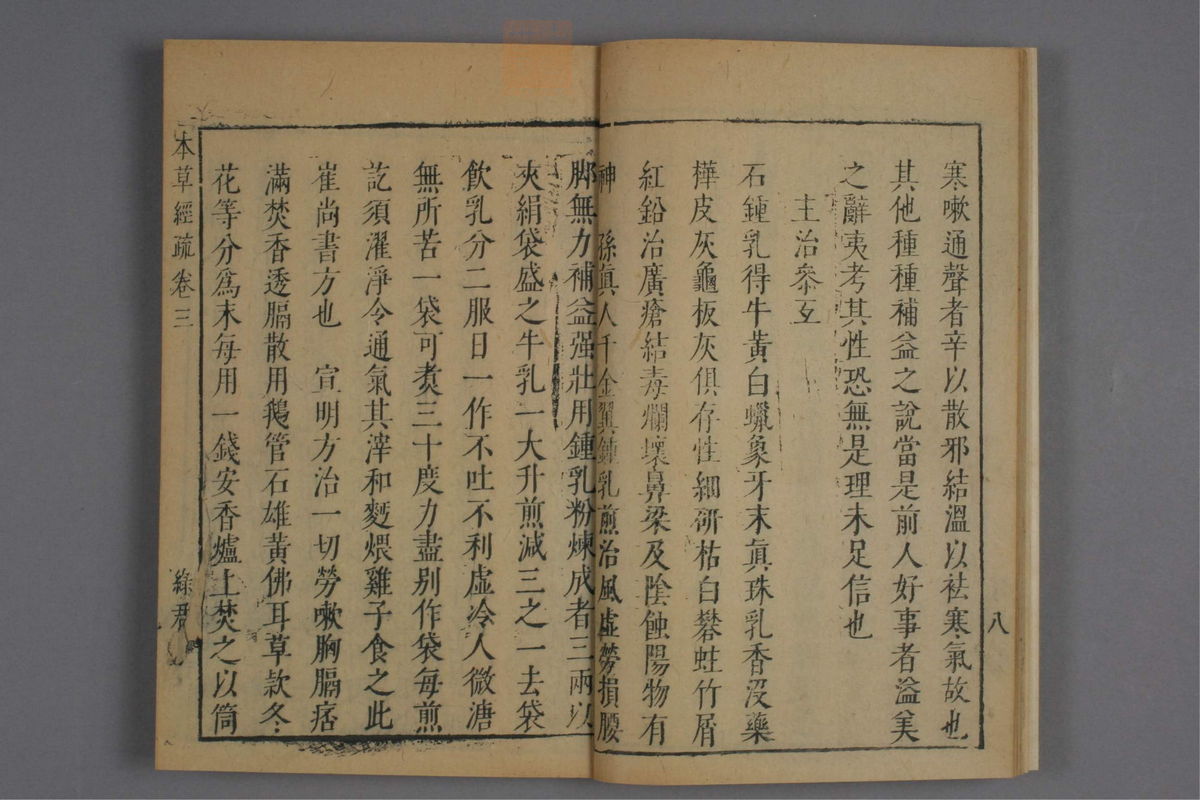 八
寒嗽通聲者辛以散邪結溫以祛寒氣故也
其他種種補益之說當是前人好事者溢美
之辭夷考其性恐無是理未足信也
主治參互
石鍾乳得牛黃白蠟象牙末眞珠乳香沒藥
樺皮灰龜板灰俱存性細硏枯白礬蛀竹屑
紅鉛治廣瘡結毒爛壞鼻梁及陰蝕陽物有
神　孫眞人千金翼鍾乳煎治風虛勞損腰
脚無力補益强壯用鍾乳粉煉成者三兩以
夾絹袋盛之牛乳一大升煎減三之一去袋
飲乳分二服日一作不吐不利虛冷人微溏
無所苦一袋可煑三十度力盡别作袋每煎
訖須濯淨令通氣其滓和麪煨雞子食之此
崔尚書方也　宣明方治一切勞嗽胸膈痞
滿焚香透膈散用鵝管石雄黃佛耳草款冬
花等分爲末每用一錢安香爐上焚之以筒
本草經疏卷三
綠君